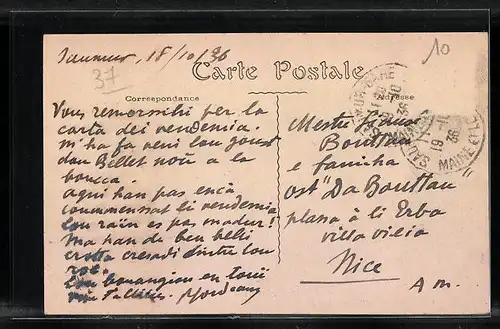 Saumur, 18/10/36
37
10
Carte Postale
Correspondance
Adresse
Vous remorschi per la
carta dei vendemia.
M'ha fa veni lou goust
dou Bellet noù a la
boucca.
Aqui han pas encà
coummensat li vendemia
lou raïn es pas madur!
Ma han de ben belli
crotta cresadi dintre lou
roc.
bouongiou en touï
Mestre
Bouttau
e famiha
ost "Da Bouttau"
plassa à li Erba
villa vilia
Nice
A. M.
SAUMUR-GARE
19 -10
36
MAINE ET L.